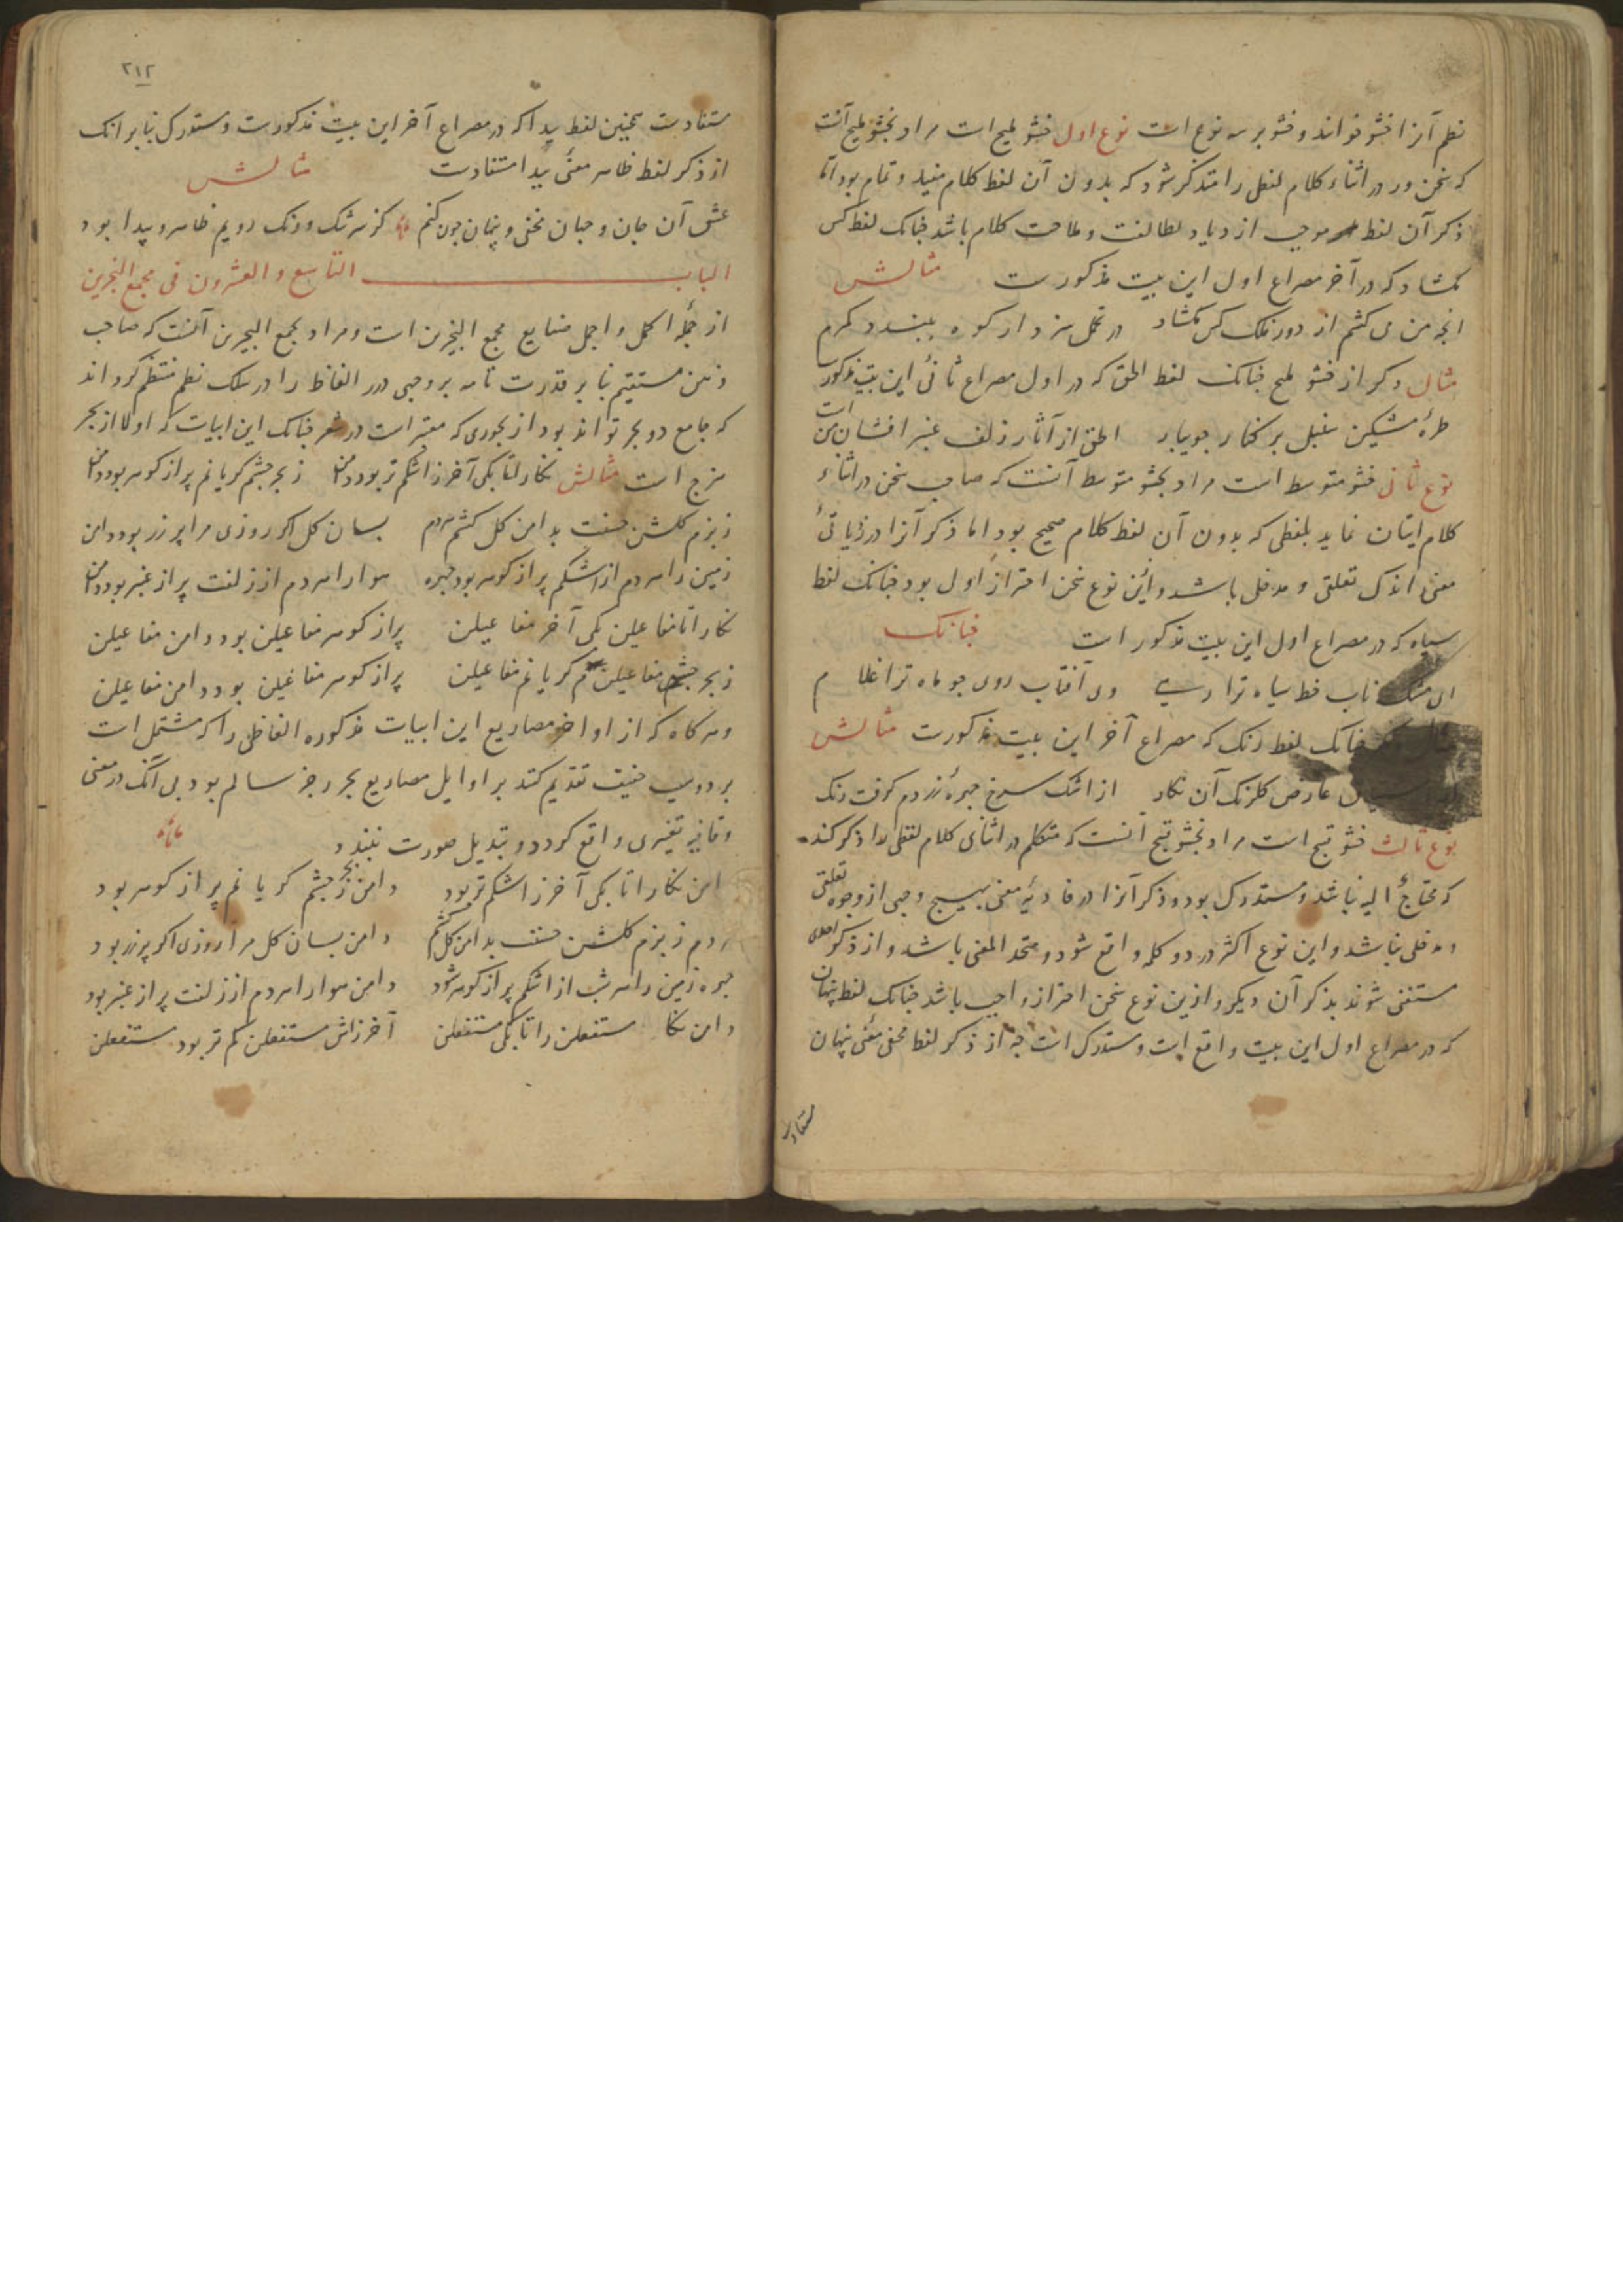 نظم آنرا حشو خوانند و حشو بر سه نوع است نوع اول حشو ملیح است مراد بحشو ملیح آنست
که سخن ور در اثناء کلام لفظی را متذکر شود که بدون آن لفظ کلام مفید و تمام بود اما
ذکر آن لفظ موجب ازدیاد لطافت و ملاحت کلام باشد چنانک لفظ کس
مکشاد که در آخر مصراع اول این بیت مذکورست مثالش
انچه من می کشم از دور فلک کس مکشاد در تحمل نبود ار کوه ببندد کمرم
مثال دکر از حشو ملیح چنانک لفظ الحق که در اول مصراع ثانی این بیت مذکور است
طرهٔ مشکین سنبل بر کنار جویبار الحق از آثار زلف عنبر افشان من
نوع ثانی حشو متوسط است مراد بحشو متوسط آنست که صاحب سخن در اثناء
کلام ایتان نماید بلفظی که بدون آن لفظ کلام صحیح بود اما ذکر آنرا در زیادتی
معنی اندک تعلقی و مدخلی باشد و این نوع سخن احتراز اولی بود چنانک لفظ
سیاه که در مصراع اول این بیت مذکور است چنانک
ای مشک ناب خط سیاه ترا رهی وی آفتاب روی چو ماه ترا غلام
چنانک لفظ رنک که مصراع آخر این بیت مذکورست مثالش
عارض کلرنک آن نکار از اشک سرخ چهرهٔ زردم کرفت رنک
نوع ثالث حشو قبیح است مراد بحشو قبیح آنست که متکلم در اثنای کلام لفظی را ذکر کند
که محتاج الیه نباشد و مستدرک بود و ذکر آنرا در فادیهٔ معنی بهیچ وجهی از وجوه تعلقی
و مدخلی نباشد و این نوع اکثر در دو کلمه واقع شود و متحد المعنی باشد و از ذکر احدی
مستغنی شوند بذکر آن دیکر و ازین نوع سخن احتراز واجب باشد چنانک لفظ پنهان
که در مصراع اول این بیت واقع است و مستدرک است چه از ذکر لفظ مخفی معنی پنهان
مستفادست
۲۱۲
مستفادست همچنین لفظ پیدا که در مصراع آخر این بیت مذکورست و مستدرک بنابر انک
از ذکر لفظ ظاهر معنی پیدا مستفادست مثالش
عشق آن جان و جهان مخفی و پنهان چون کنم کز سرشک و رنک رویم ظاهر و پیدا بود
الباب التاسع و العشرون فی مجمع البحرین
از جملهٔ اکمل و اجمل صنایع مجمع البحرین است و مراد بمجمع البحرین آنست که صاحب
ذهن مستقیم بنا بر قدرت تامه بر وجهی درر الفاظ را در سلک نظم منتظم کرداند
که جامع دو بحر تواند بود از بحوری که معتبر است در شعر چنانک این ابیات که اولا از بحر
هزج است مثالش نکارا تا بکی آخر ز اشکم تر بود دامن ز بحر چشم کریانم پر از کوهر بود دامن
ز بزم کلشن حسنت بدامن کل کشم هردم بسان کل اکر روزی مرا پر زر بود دامن
زمین را هر دم از اشکم پر از کوهر بود چهره هوا را هر دم از زلفت پر از عنبر بود دامن
نکارا تا مفاعیلن بکی آخر مفاعیلن پر از کوهر مفاعیلن بود دامن مفاعیلن
ز بحر چشم مفاعیلن کریانم مفاعیلن پر از کوهر مفاعیلن بود دامن مفاعیلن
و هرکاه که از اواخر مصاریع این ابیات مذکوره الفاظی را که مشتمل است
بر دو سبب خفیف تقدیم کنند بر اوایل مصاریع بحر رجز سالم بود بی آنک در معنی
و قافیه تغییری واقع کردد و تبدیل صورت بندد
دامن نکارا تا بکی آخر ز اشکم تر بود دامن ز بحر چشم کریانم پر از کوهر بود
هردم ز بزم کلشن حسنت بدامن کل کشم دامن بسان کل مرا روزی اکر پر زر بود
چهره زمین را هر شب از اشکم پر از کوهر شود دامن هوا را هر دم از زلفت پر از عنبر بود
دامن نکا مستفعلن را تا بکی مستفعلن آخر ز اش مستفعلن کم تر بود مستفعلن